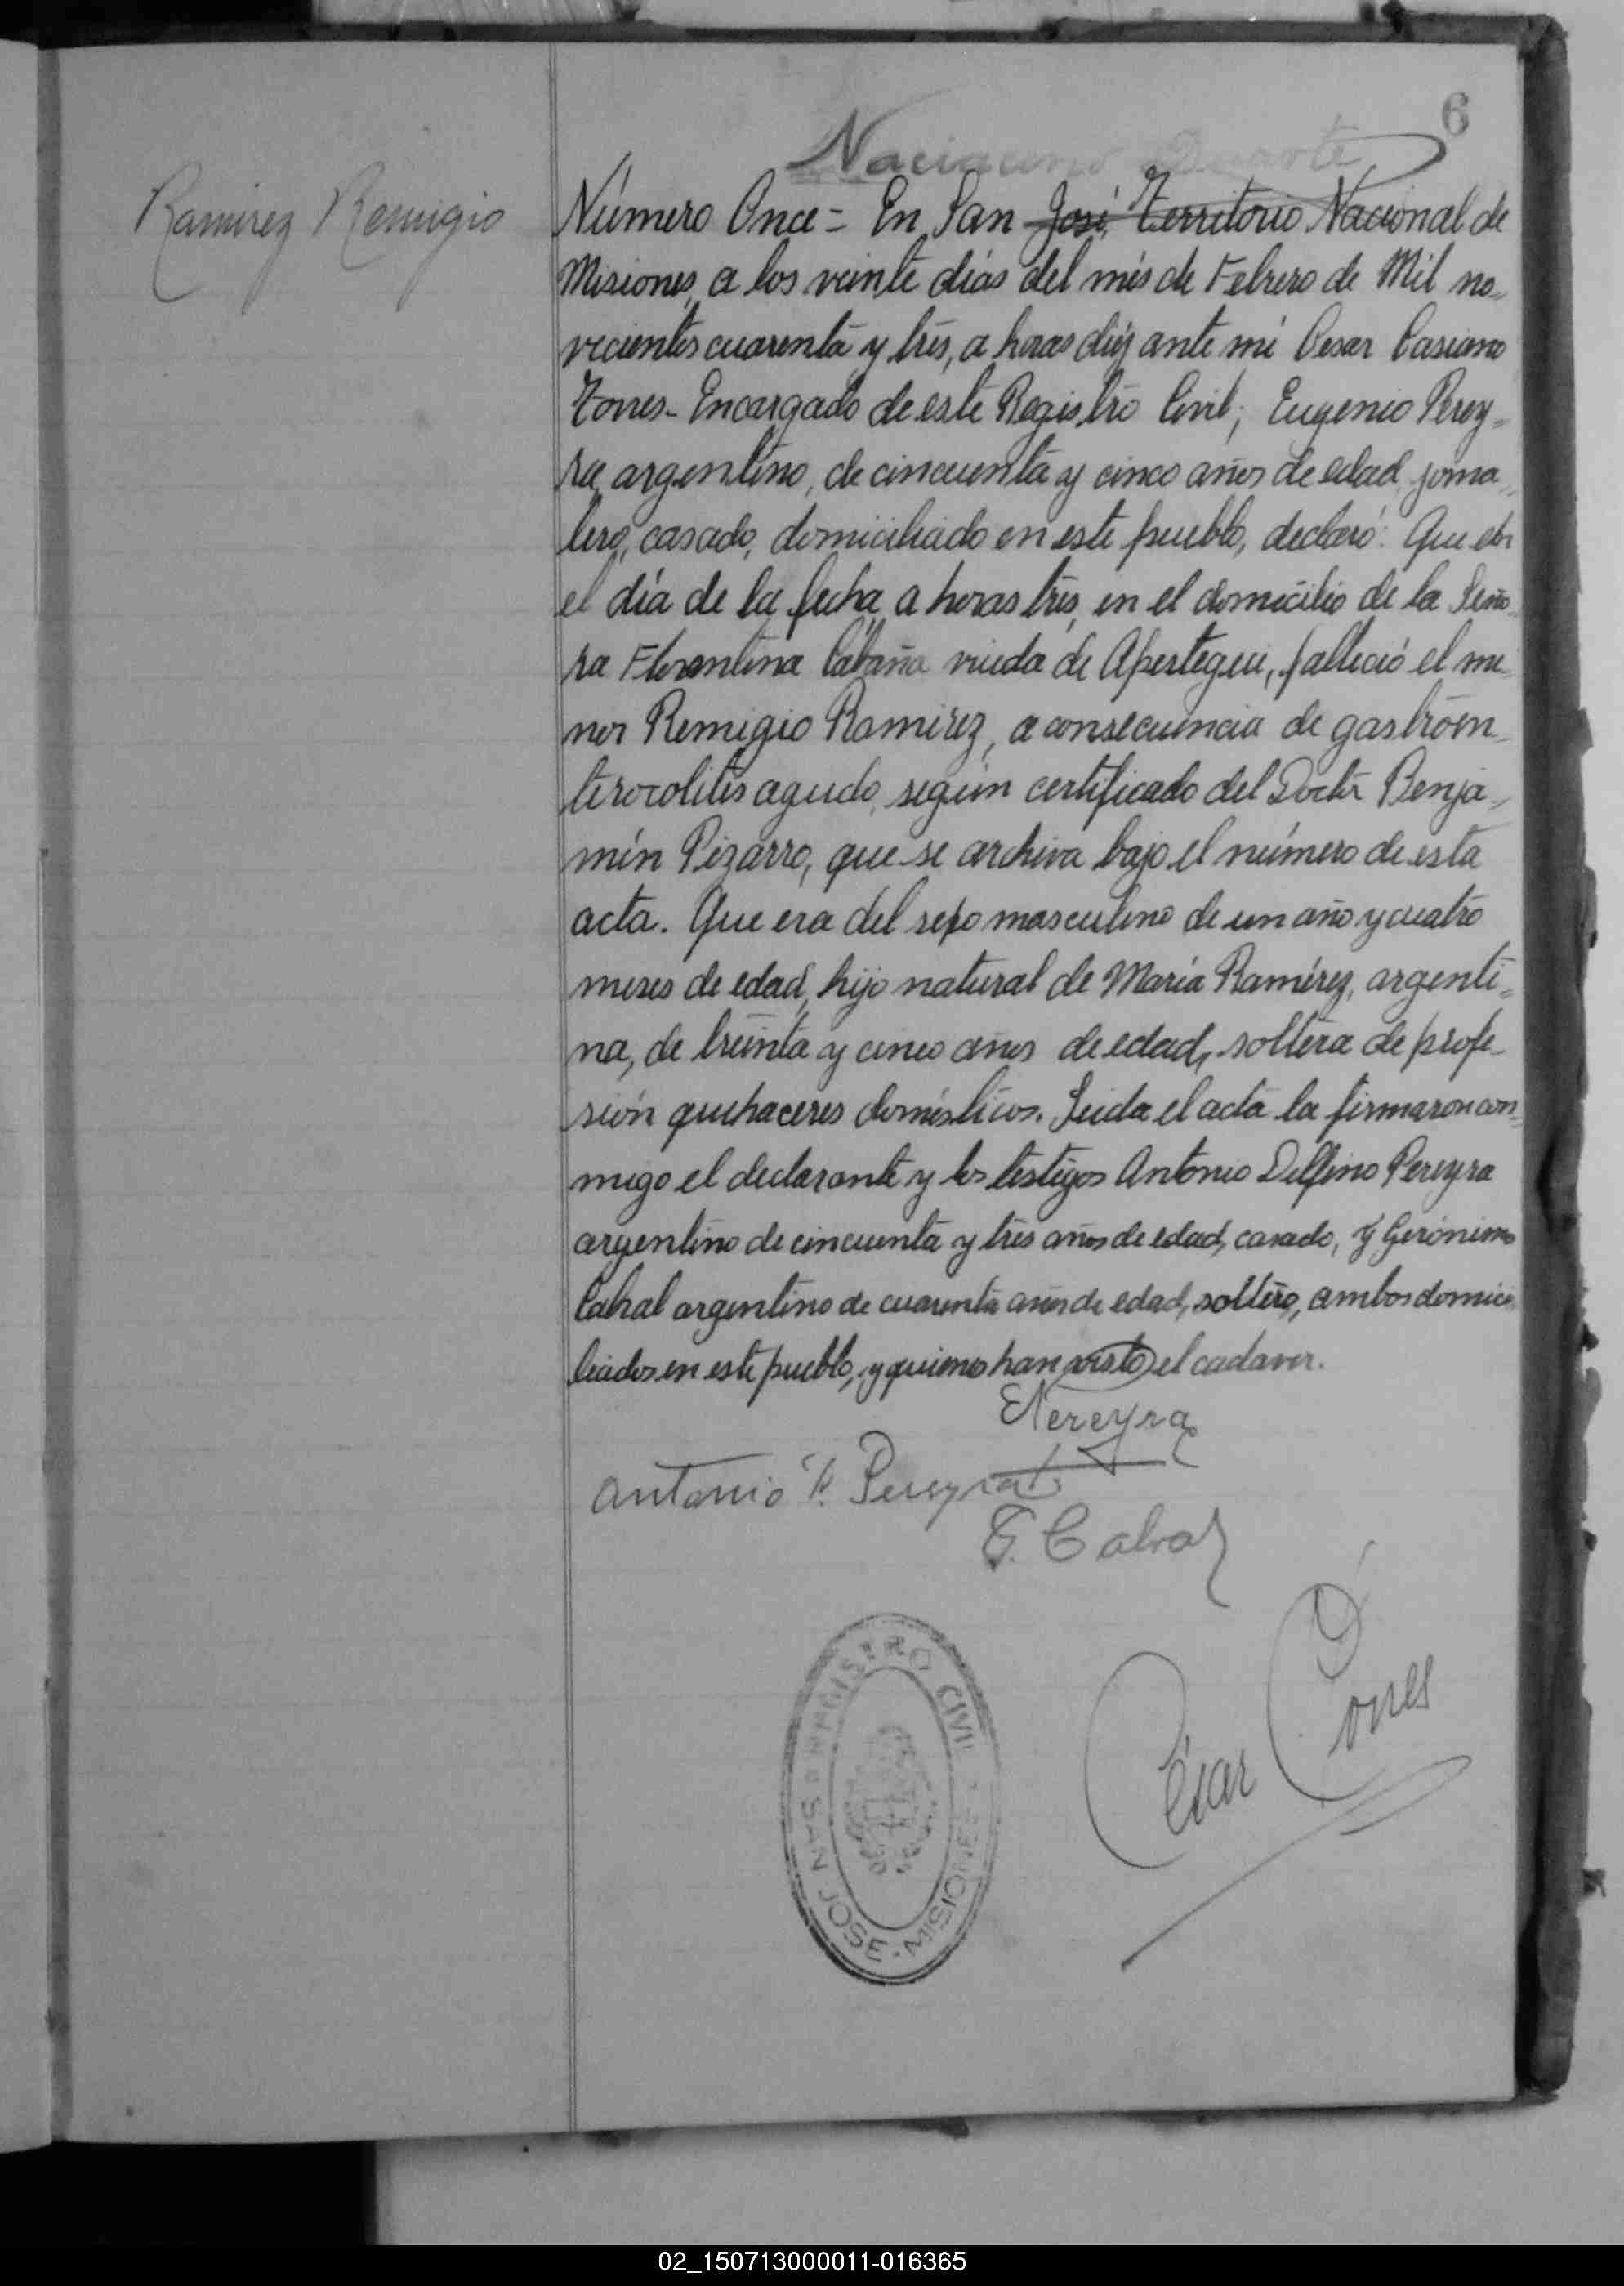 6
Ramirez Remigio
Número Once = En San José, Territorio Nacional de
Misiones, a los veinte días del més de Febrero de Mil no=
vecientos cuarenta y trés, a horas diéz ante mi Cesar Casiano
Torres - Encargado de este Registro Civil; Eugenio Perey=
ra, argentino, de cincuenta y cinco años de edad, jorna=
lero, casado, domiciliado en este pueblo, declaró: Que en
el día de la fecha, a horas trés, en el domicilio de la Seño=
ra Florentina Cabaña viuda de Apestegui, falleció el me
nor Remigio Ramirez, a consecuencia de gastroen
terocolitis agudo, según certificado del Doctor Benja=
mín Pizarro, que se archiva bajo el número de esta
acta. Que era del sexo masculino de un año y cuatro
meses de edad, hijo natural de María Ramírez, argenti=
na, de treinta y cinco años de edad, soltera de profe-
sión quehaceres domésticos. Leida el acta la firmaron con=
migo el declarante y los testigos Antonio Delfino Pereyra
argentino de cincuenta y tres años de edad, casado, y Gerónimo
Cabral argentino de cuarenta años de edad, soltero, ambos domici
liados en este pueblo, y quienes han visto el cadaver.
EPereyra
Antonio D. Pereyra
G. Cabral
César Torres
REGISTRO CIVIL
SAN JOSE - MISIONES
02_150713000011-016365